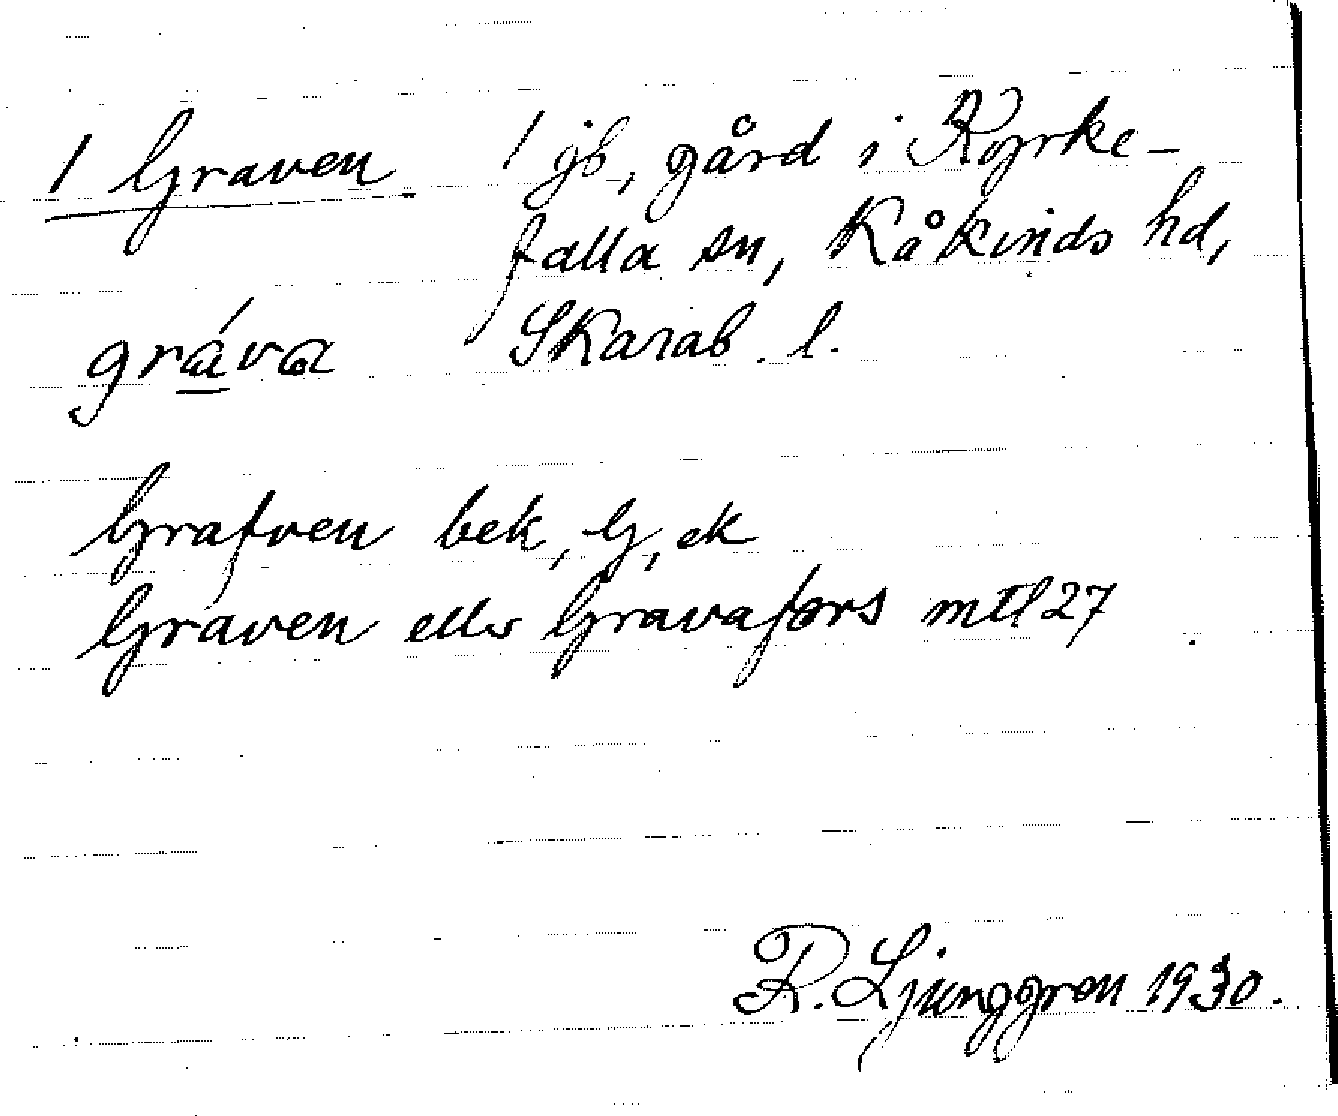 1 Graven 1 jb, gård i Kyrke-
falla sn, Kåkinds hd,
gráva Skarab. l.
Grafven bek, G, ek
Graven eller Gravafors mtl 27
R. Ljunggren 1930.